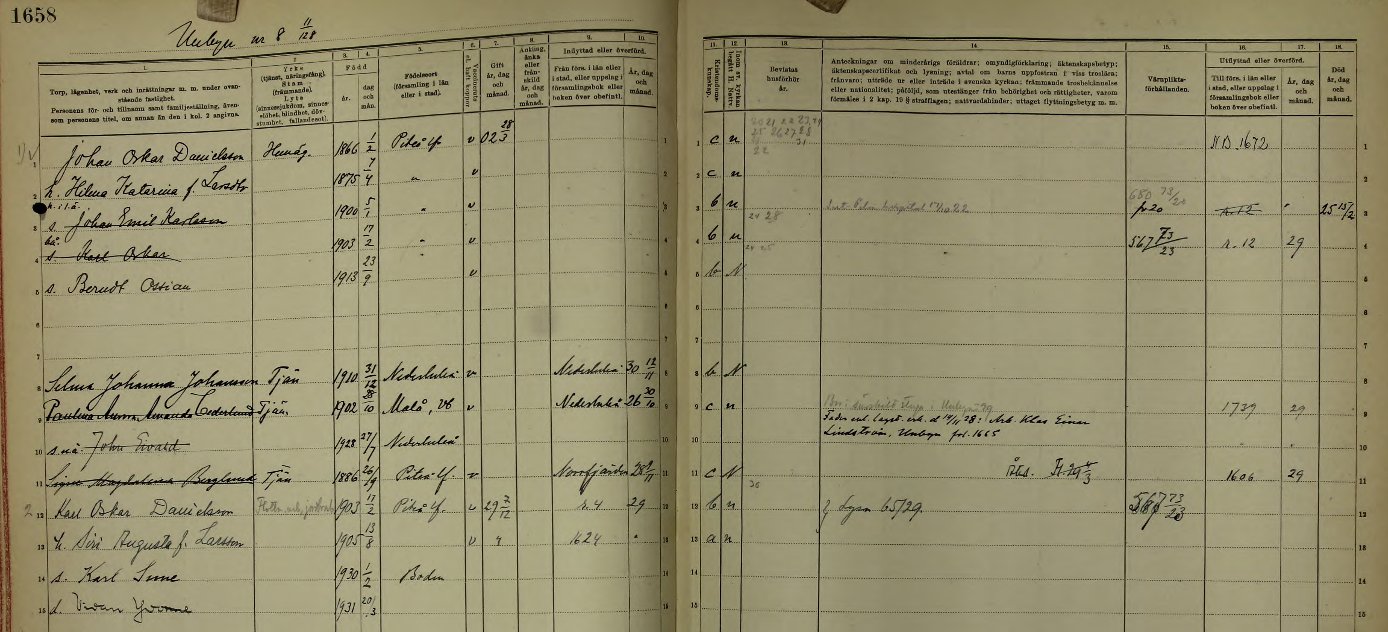 1658
nr 8 11/128
1. 2. 3. 4. 5. 6. 7. 8. 9. 10.
Torp, lägenhet, verk och inrättningar m. m. under ovanstående fastighet.
Personens för- och tillnamn samt familjeställning, även som personens titel, om annan än den i kol. 2 angivna.
Yrke (tjänst, näringsfång). Stam (främmande). Lyte (sinnessjukdom, sinnesslöhet, blindhet, dövstumhet, fallandesot).
Född år. dag och mån.
Födelseort (församling i län eller i stad).
Gift år, dag och månad.
Änkling, änka eller frånskild år, dag och månad.
Inflyttad eller överförd.
Från förs. i län eller i stad, eller uppslag i församlingsbok eller boken över obefintl.
År, dag och månad.
11. 12. 13. 14. 15. 16. 17. 18.
Kristendomskunskap.
Bevistat husförhör år.
Anteckningar om minderårigs föräldrar; omyndigförklaring; äktenskapsbetyg; äktenskapscertifikat och lysning; avtal om barns uppfostran i viss troslära; frånvaro; utträde ur eller inträde i svenska kyrkan; främmande trosbekännelse eller nationalitet; påföljd, som utestänger från behörighet och rättigheter, varom förmäles i 2 kap. 19 § strafflagen; nattvardshinder; uttaget flyttningsbetyg m. m.
Värnplikts-förhållanden.
Utflyttad eller överförd.
Till förs. i län eller i stad, eller uppslag i församlingsbok eller boken över obefintl.
År, dag och månad.
Död år, dag och månad.
1 Johan Oskar Danielsson Hemäg. 1866 1/2 Piteå lf. v 02 28/3 1 c n N.B. 1672 1
2 h. Hilma Katarina f. Larsdtr 1875 7/4 " v 2 c n 2
3 s. Johan Emil Karlsson 1900 5/1 " v 3 b n 28 680 73/20 fr 20 r. 12 " 25 15/2 3
4 s. Karl Oskar 1903 17/2 " v 4 b n 567 73/23 r. 12 29 4
5 s. Berndt Ossian 1913 23/9 v 5 b N 5
6
7
8 Selma Johanna Johansson Tjän 1910 31/12 Nederluleå v Nederluleå 30 12/11 8 b N 8
9 Paulina Anna Amanda Cederlund Tjän. 1902 28/10 Malå, Vb v Nederluleå 26 30/10 9 c n 1729 29 9
Fader enl. lagst. erk. d 14/11 28: Arb. Klas Einar
10 s. uä. John Eivald 1928 27/7 Nederluleå 10 Lindström, Unbyn fol. 1665 " " 10
11 Signe Magdalena Berglund Tjän 1886 26/9 Piteå lf. v Norrfjärden 28 9/11 11 c N 1606 29 11
12 Karl Oskar Danielsson 1903 17/2 Piteå lf. v 29 7/12 r. 4 29 12 b n Lysn 65/29. 567 73/23 12
13 h. Siri Augusta f. Larsson 1905 13/8 v " 1624 " 13 a n 13
14 s. Karl Sune 1930 1/2 Boden 14
15 d. Vivan Yvonne 1931 20/3 15